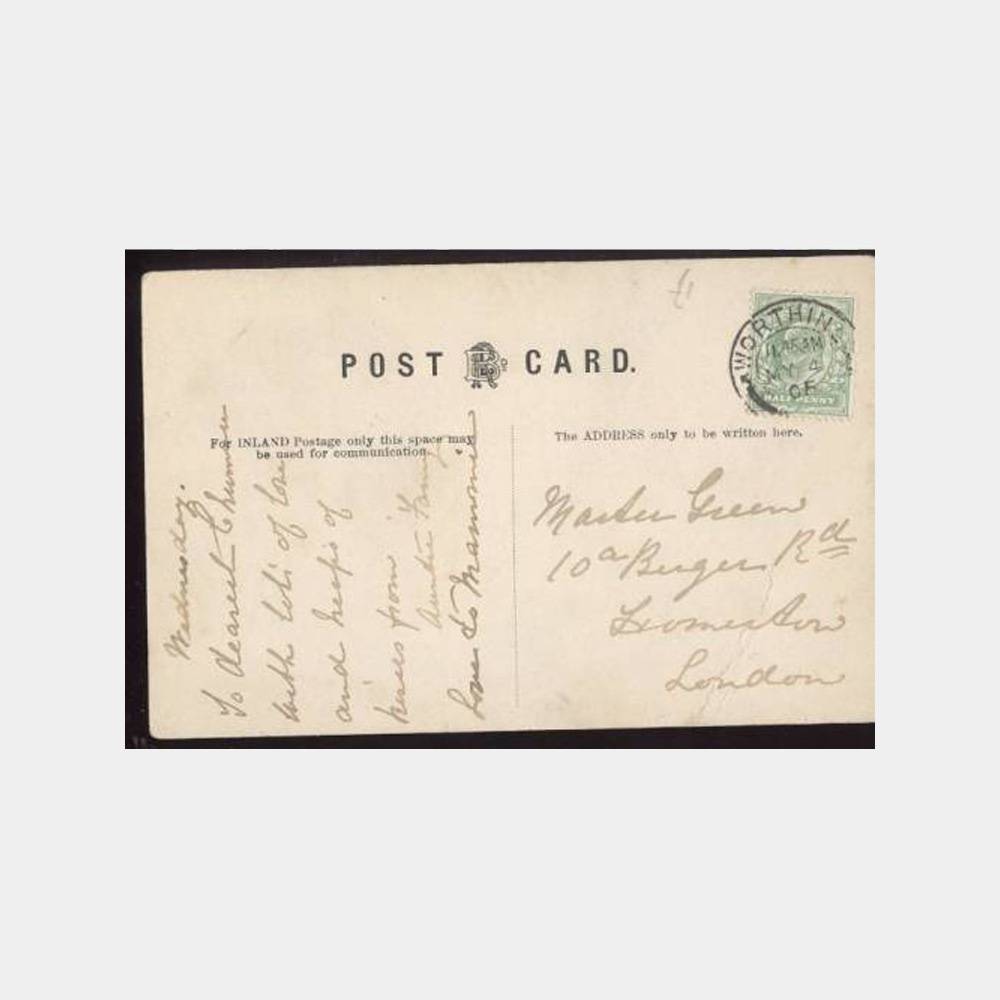 POST CARD.
For INLAND Postage only this space may
be used for communication.
The ADDRESS only to be written here.
WORTHING
MY 4
HALFPENNY
Wednesday.
To dearest Chummie
with lots of love
and heaps of
kisses from
Auntie Fanny
Love to Mammie
Master Green
10a Berger Rd
Homerton
London